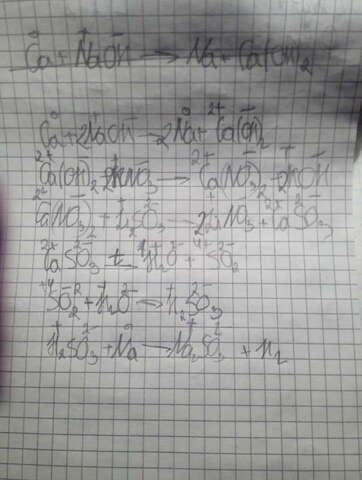 Ca + NaOH → Na + Ca(OH)2
Ca + 2NaOH → 2Na + Ca(OH)2
Ca(OH)2 + 2KNO3 → Ca(NO3)2 + 2KOH
Ca(NO3)2 + Li2SO3 → 2LiNO3 + CaSO3
CaSO3 + H2O + SO2
SO2 + H2O → H2SO3
H2SO3 + Na → Na2SO3 + H2